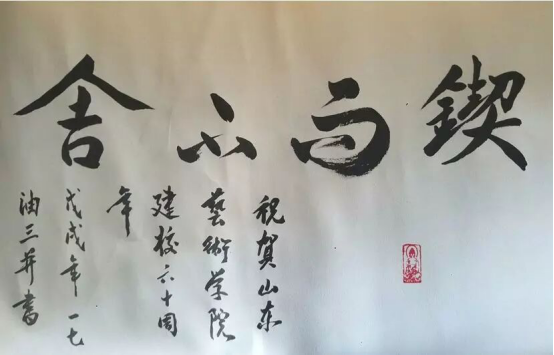 锲而不舍
祝贺山东
藝術学院
建校六十周
年
戊戌年 一七
油三井書